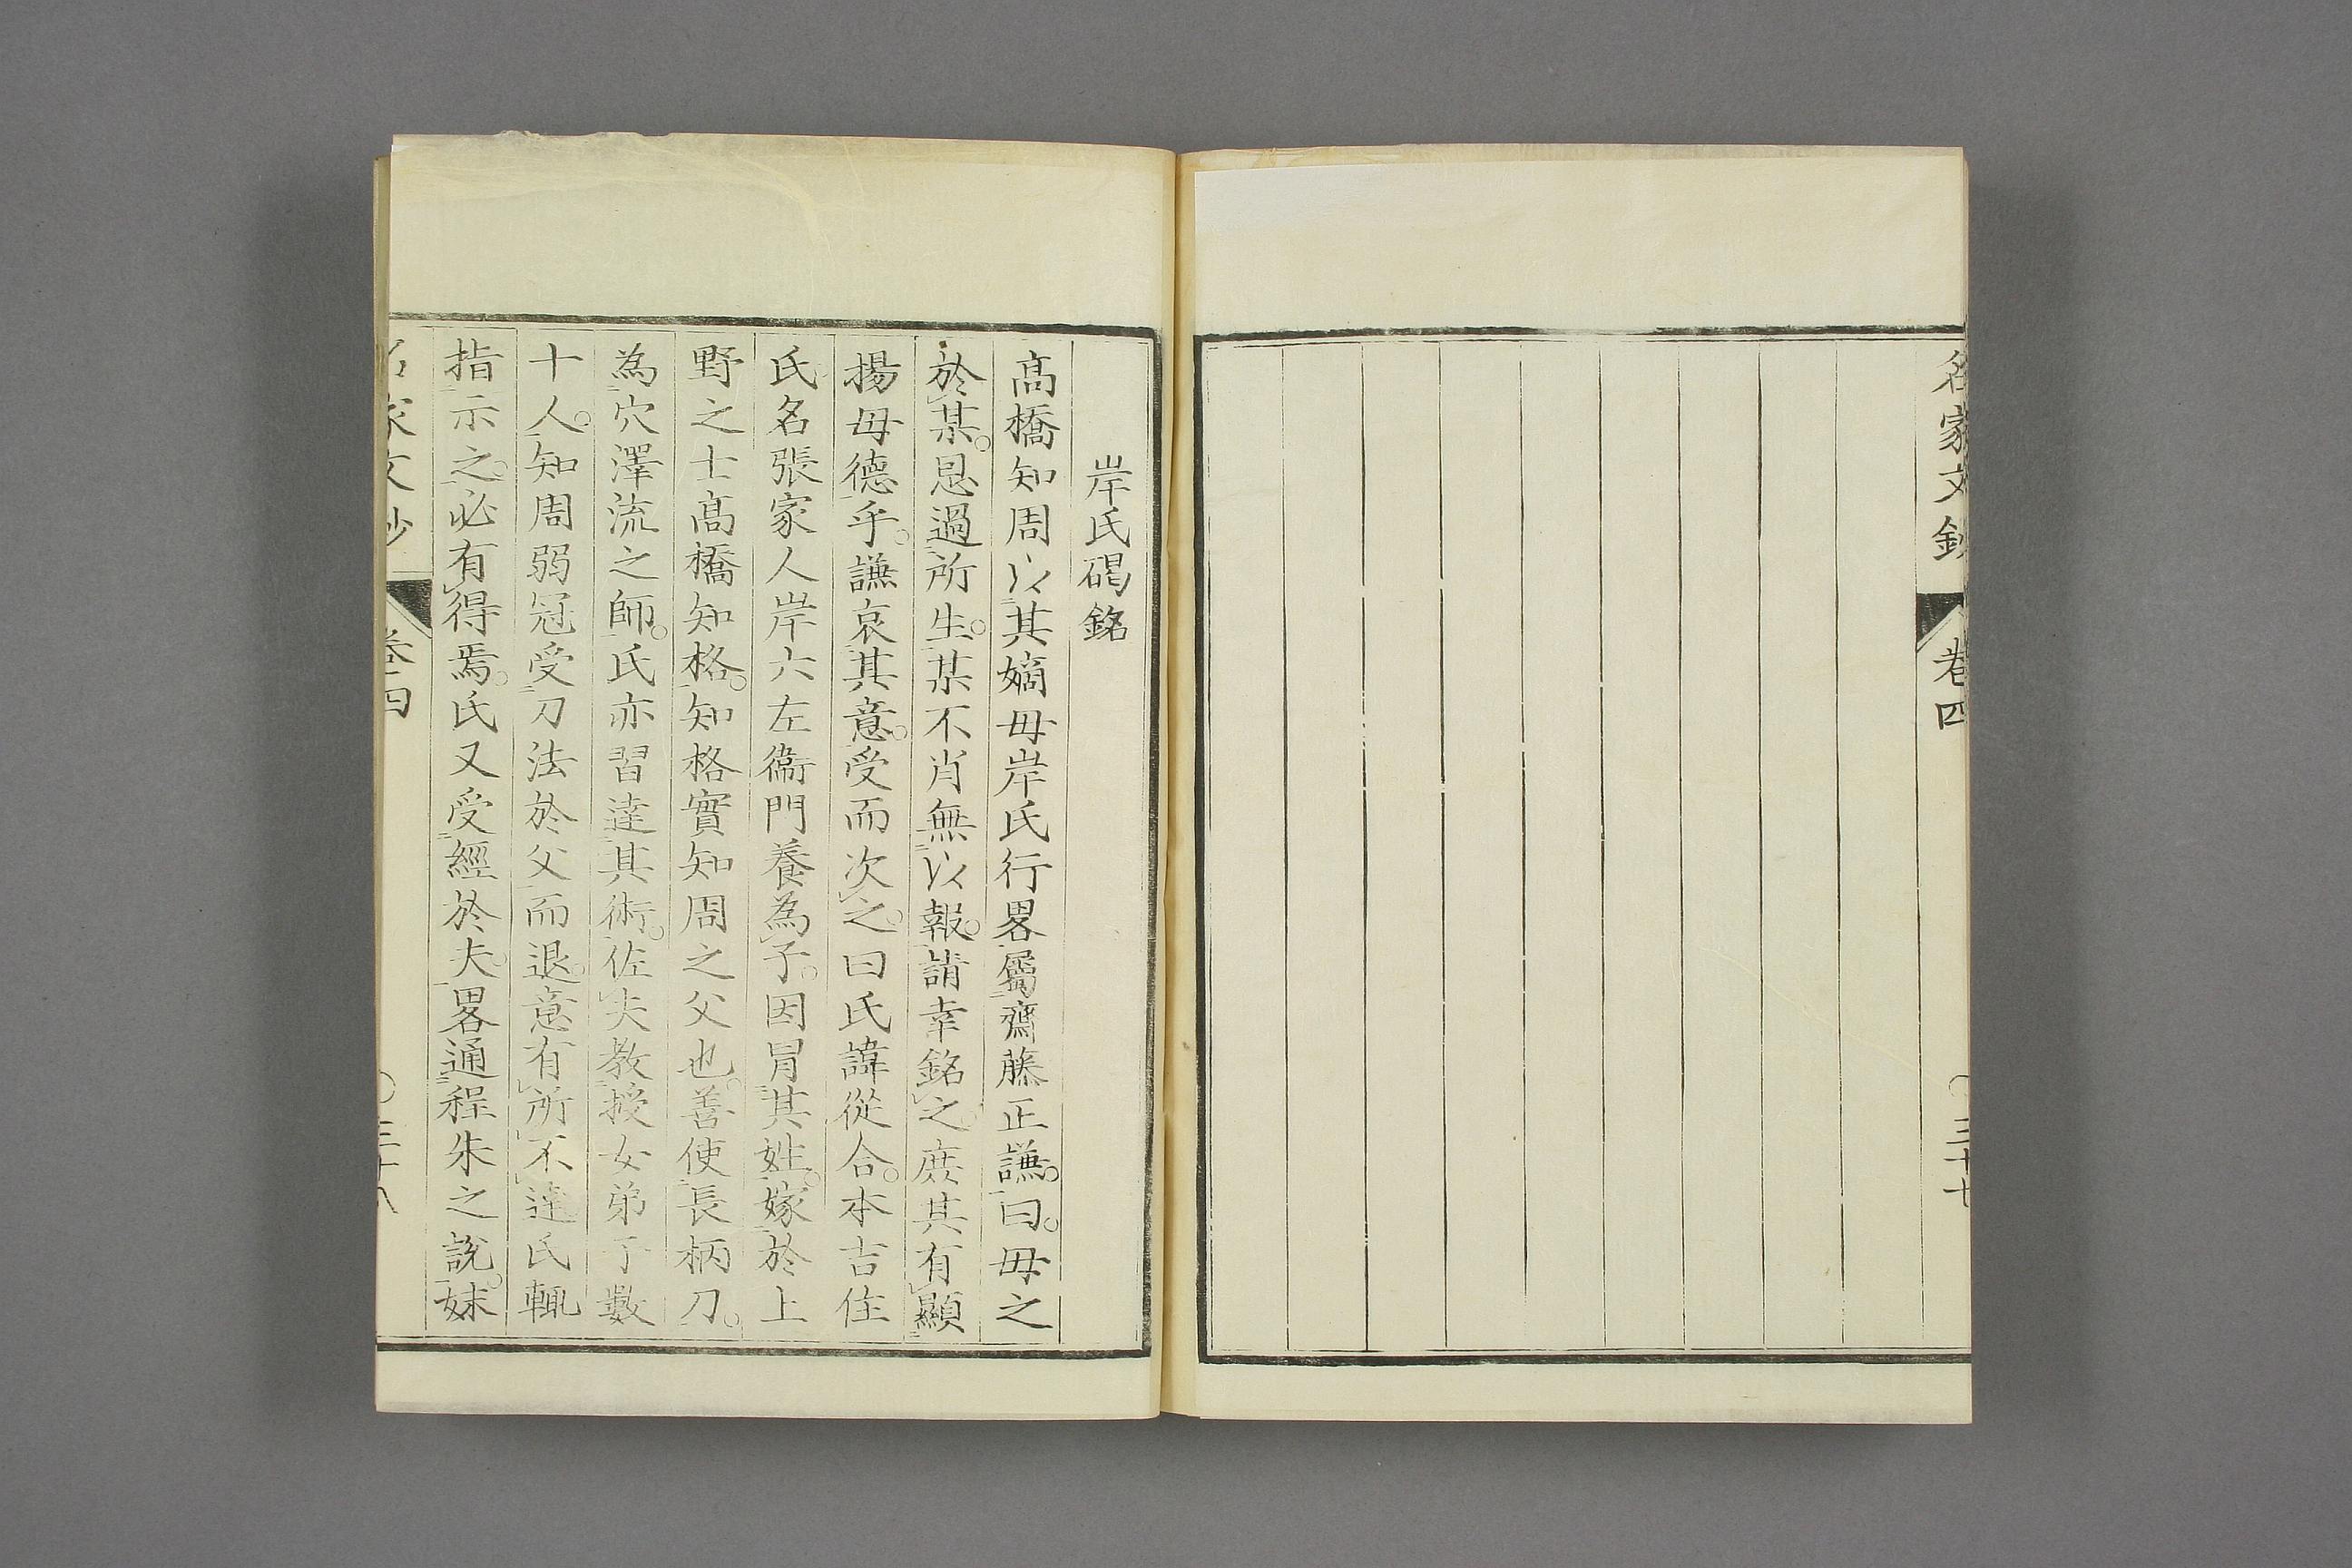 名家文鈔 卷四 〇三十七
岸氏碣銘
高橋知周以其嫡母岸氏行畧屬齋藤正謙。曰。母之
於某。恩過所生。某不肖無以報。請幸銘之。庶其有顯
揚母德乎。謙哀其意。受而次之。曰氏諱從合。本吉住
氏名張家人岸六左衞門養為子。因冒其姓。嫁於上
野之士高橋知格。知格實知周之父也。善使長柄刀。
為穴澤流之師。氏亦習達其術。佐夫教授女弟子數
十人。知周弱冠受刀法於父而退。意有所不達氏輒
指示之。必有得焉。氏又受經於夫。畧通程朱之說。妹
名家文鈔 卷四 〇三十八